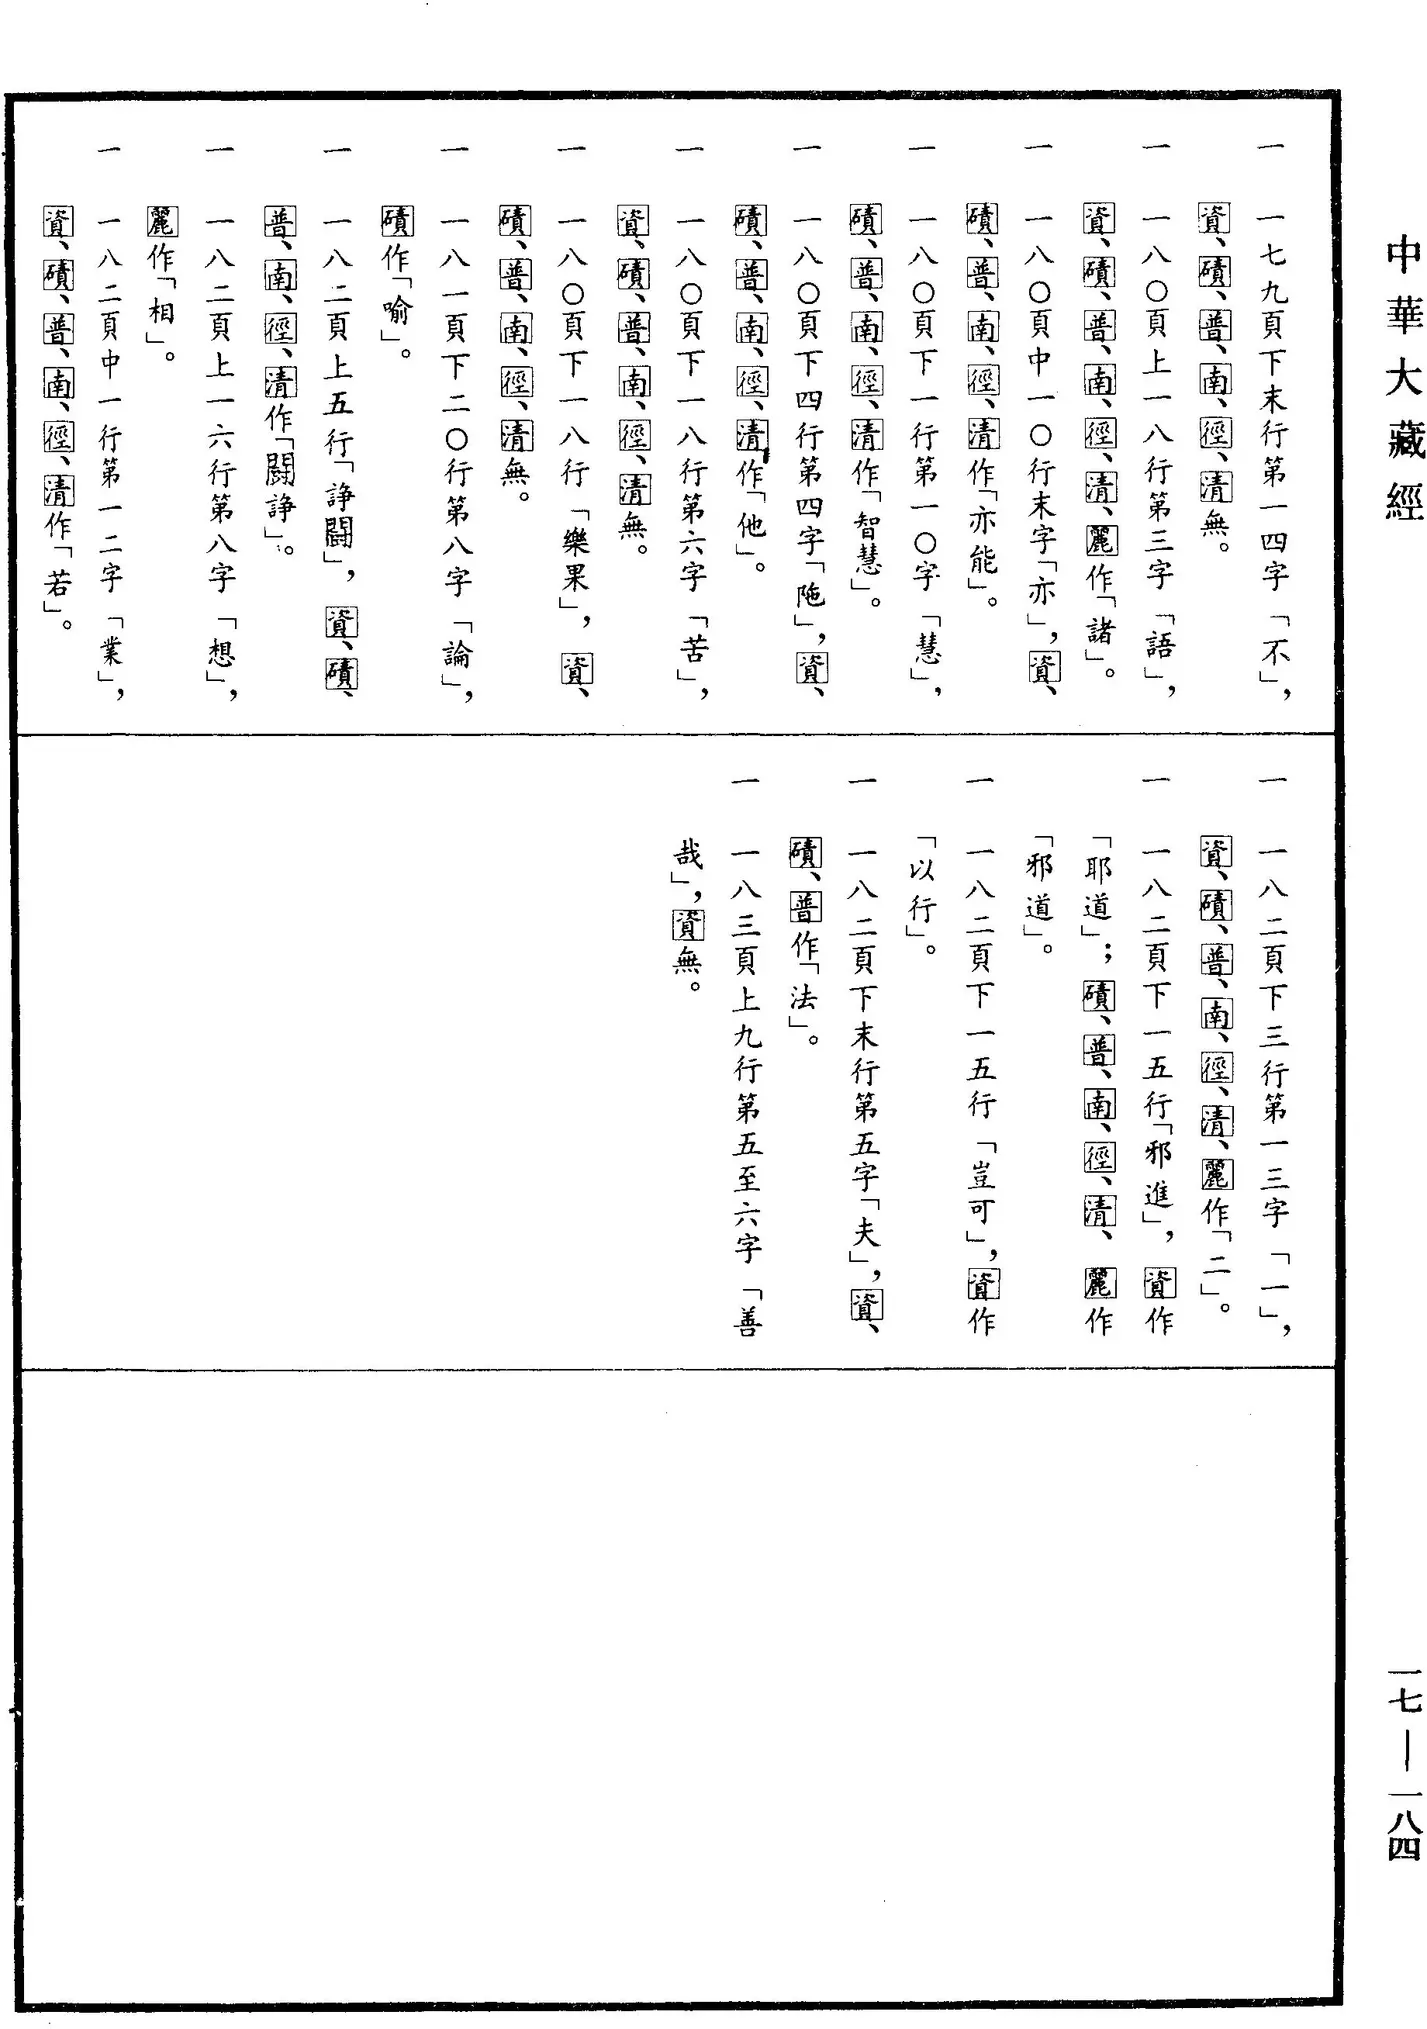 中華大藏經
一七—一八四
一 一七九頁下末行第一四字「不」，
資、磧、普、南、徑、清無。
一 一八〇頁上一八行第三字「語」，
資、磧、普、南、徑、清、麗作「諸」。
一 一八〇頁中一〇行末字「亦」，資、
磧、普、南、徑、清作「亦能」。
一 一八〇頁下一行第一〇字「慧」，
磧、普、南、徑、清作「智慧」。
一 一八〇頁下四行第四字「陁」，資、
磧、普、南、徑、清作「他」。
一 一八〇頁下一八行第六字「苦」，
資、磧、普、南、徑、清無。
一 一八〇頁下一八行「樂果」，資、
磧、普、南、徑、清無。
一 一八一頁下二〇行第八字「論」，
磧作「喻」。
一 一八二頁上五行「諍鬪」，資、磧、
普、南、徑、清作「鬪諍」。
一 一八二頁上一六行第八字「想」，
麗作「相」。
一 一八二頁中一行第一二字「業」，
資、磧、普、南、徑、清作「若」。
一 一八二頁下三行第一三字「一」，
資、磧、普、南、徑、清、麗作「二」。
一 一八二頁下一五行「邪進」，資作
「耶道」；磧、普、南、徑、清、麗作
「邪道」。
一 一八二頁下一五行「豈可」，資作
「以行」。
一 一八二頁下末行第五字「夫」，資、
磧、普作「法」。
一 一八三頁上九行第五至六字「善
哉」，資無。